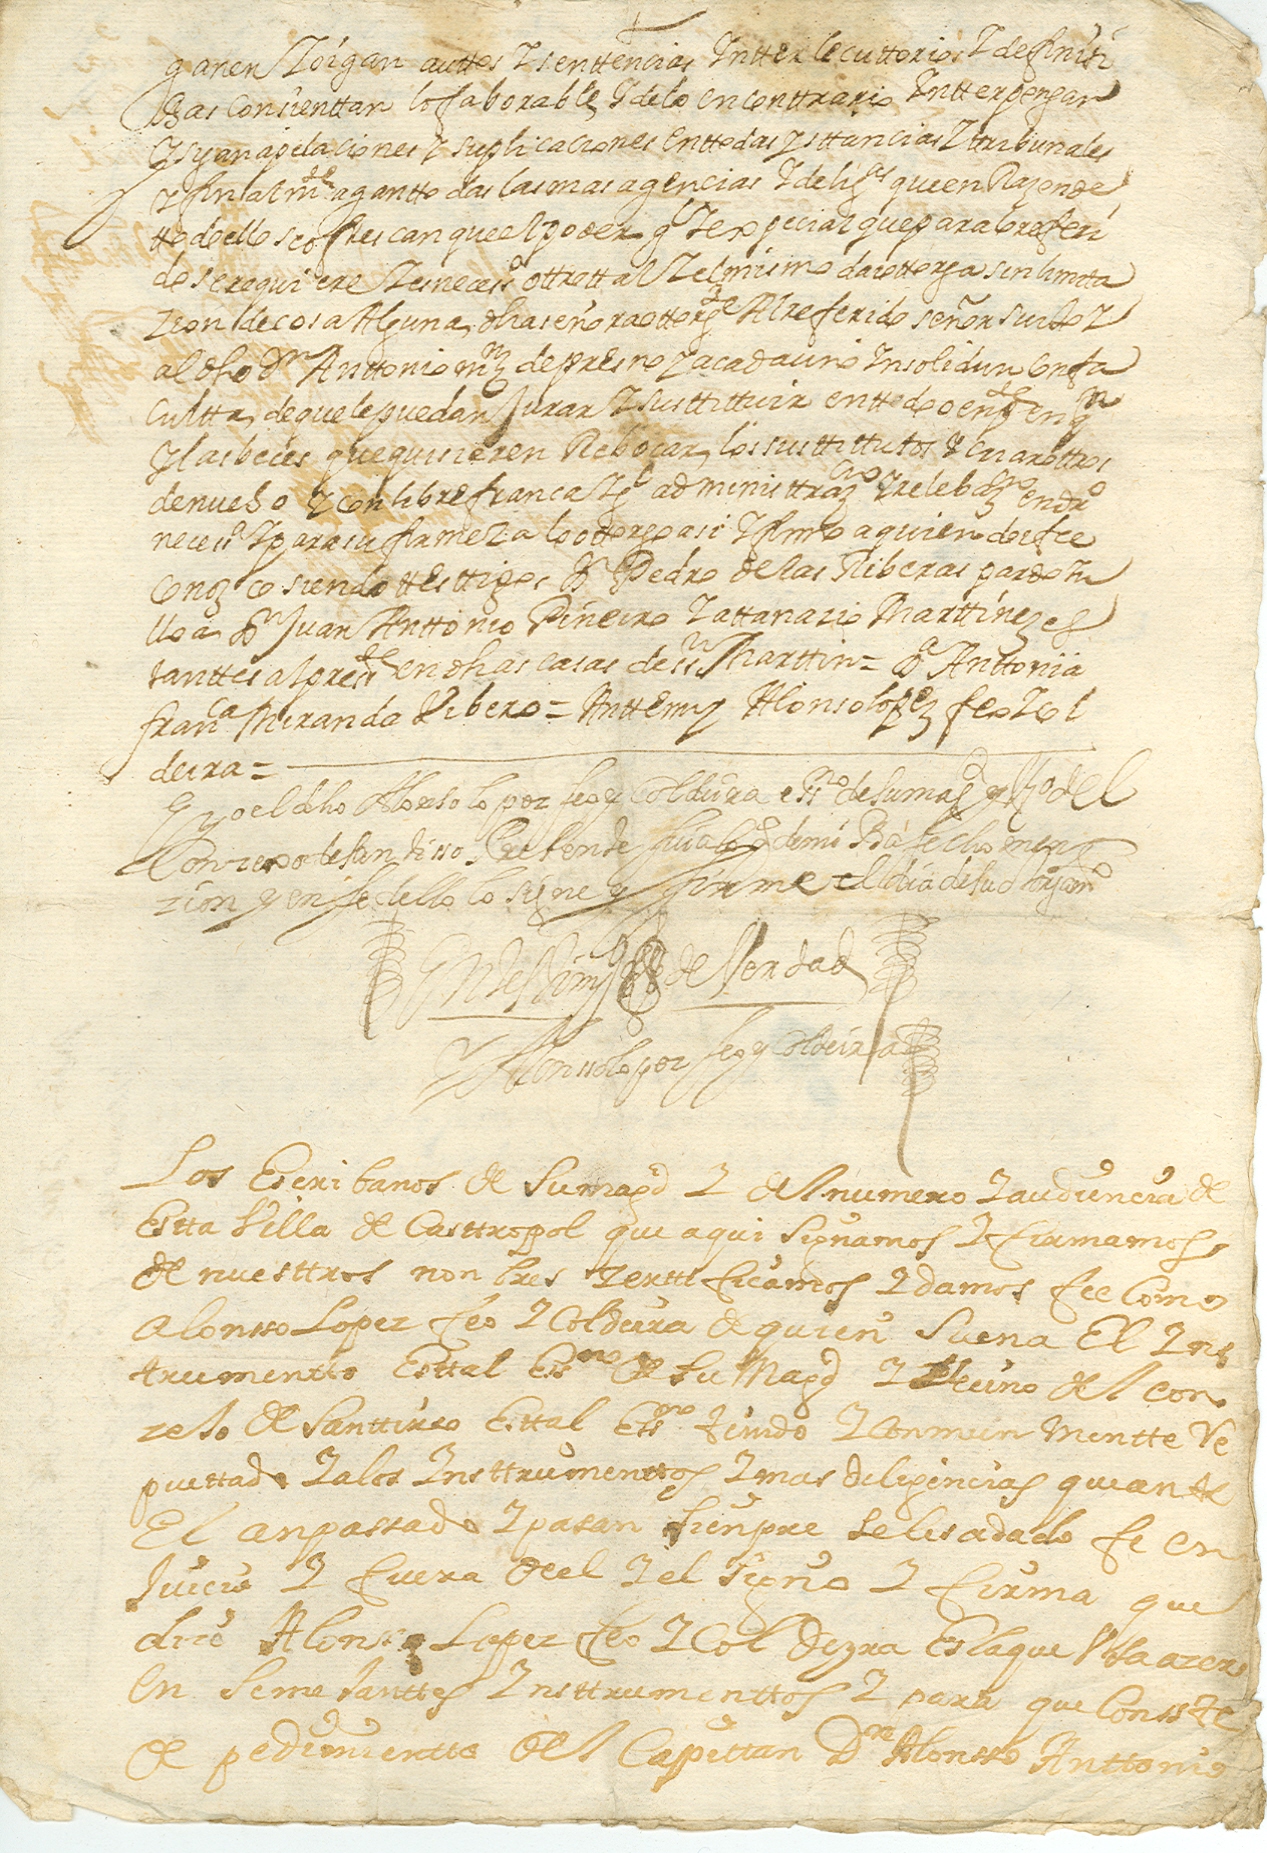 ganen Y oigan auttos Y senttencias Yntterlocuttorios Y definiti
bas Consienttan lo faborable Y de lo en conttrario Yntterpongan
Y sigan apelaciones Y suplicaciones en ttodas Ynsttancias Y ttribunales
Y finalmte agan ttodas las mas agencias Y deligs que en Razon de
ttodo ello se ofrescan que el poder Y especial que para lo referi
do se requiere Y es necesso ottro ttal Y el mismo da Y ottorga sin limitta
zion de cosa Alguna dha señora ottorgte Al referido señor su
al dho Dn Anttonio mrz de presno Y a cada uno Ynsolidun con fa
Culttad de que le puedan Jurar Y susttittuir en ttodo o en pte en qn
Y las beces que quisieren Rebocar los susttittutos Y criar ottros
de nuebo Y con libre franca Y gl administtrazon Y relebazon en dro
necesa Y para su firmeza lo ottorgo asi Y firmo a quien doi fee
conozco siendo ttesttigos Dn Pedro de las Riberas pardo Y u
lloa Dn Juan Anttonio Piñeiro Y attanasio Marttinez es
tanttes al presste en dhas casas de sn Marttin = Da Anttonia
franca Miranda Ribero = Antte mi Alonso lopez feo Y Col
deira =
Yo el dho Alonso lopez feo y Coldeira essno de su magd y Vo del
Conzexo de san tisso Presente fui a lo q de mi Ba fecho men
zion y en fe dello lo signe y firme el dia de su otorgamto
En testimo de Verdad
Alonsso lopez feo y Coldeira
Los Escribanos de Su magd Y del numero Y audiencia de
Estta Villa de Casttropol que aqui Signamos Y firmamos
de nuesttros nonbres Zerttificamos Y damos fee Como
Alonsso Lopez feo Y Coldeira de quien Suena El Yns
trumentto Esttal Essno de Su Magd Y Vecino del con
zejo de Santtisso Esttal Essno tenido Y Conmun mentte Re
puttado Y a los Ynsttrumenttos Y mas deligencias que an te
El an passado Y pasan sienpre se les a dado fe en
Juicio Y fuera del Y el Signo Y firma que
dice Alonsso Lopez feo Y Coldeyra Es la que Vsa azer
En Semejanttes Ynsttrumenttos Y para que Conste
de pedimientto del Capittan Dn Alonsso Anttonio